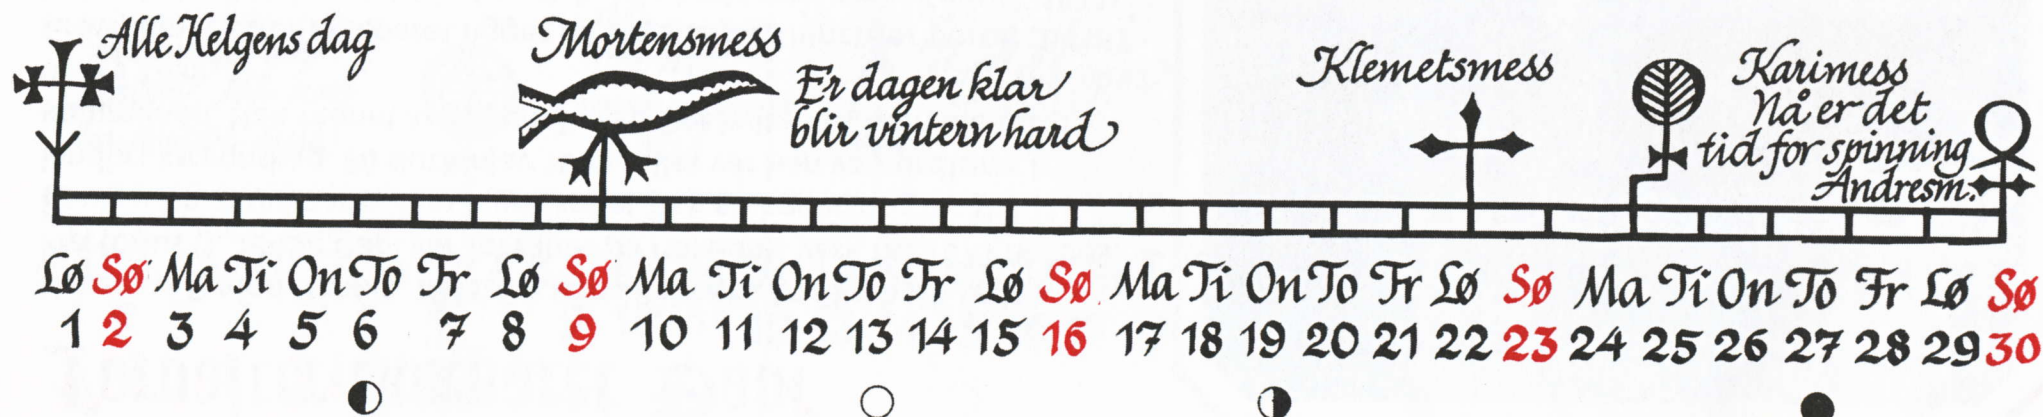 Alle Helgens dag
Mortensmess
Er dagen klar
blir vintern hard
Klemetsmess
Karimess
Nå er det
tid for spinning
Andresm.
Lø Sø Ma Ti On To Fr Lø Sø Ma Ti On To Fr Lø Sø Ma Ti On To Fr Lø Sø Ma Ti On To Fr Lø Sø
1 2 3 4 5 6 7 8 9 10 11 12 13 14 15 16 17 18 19 20 21 22 23 24 25 26 27 28 29 30